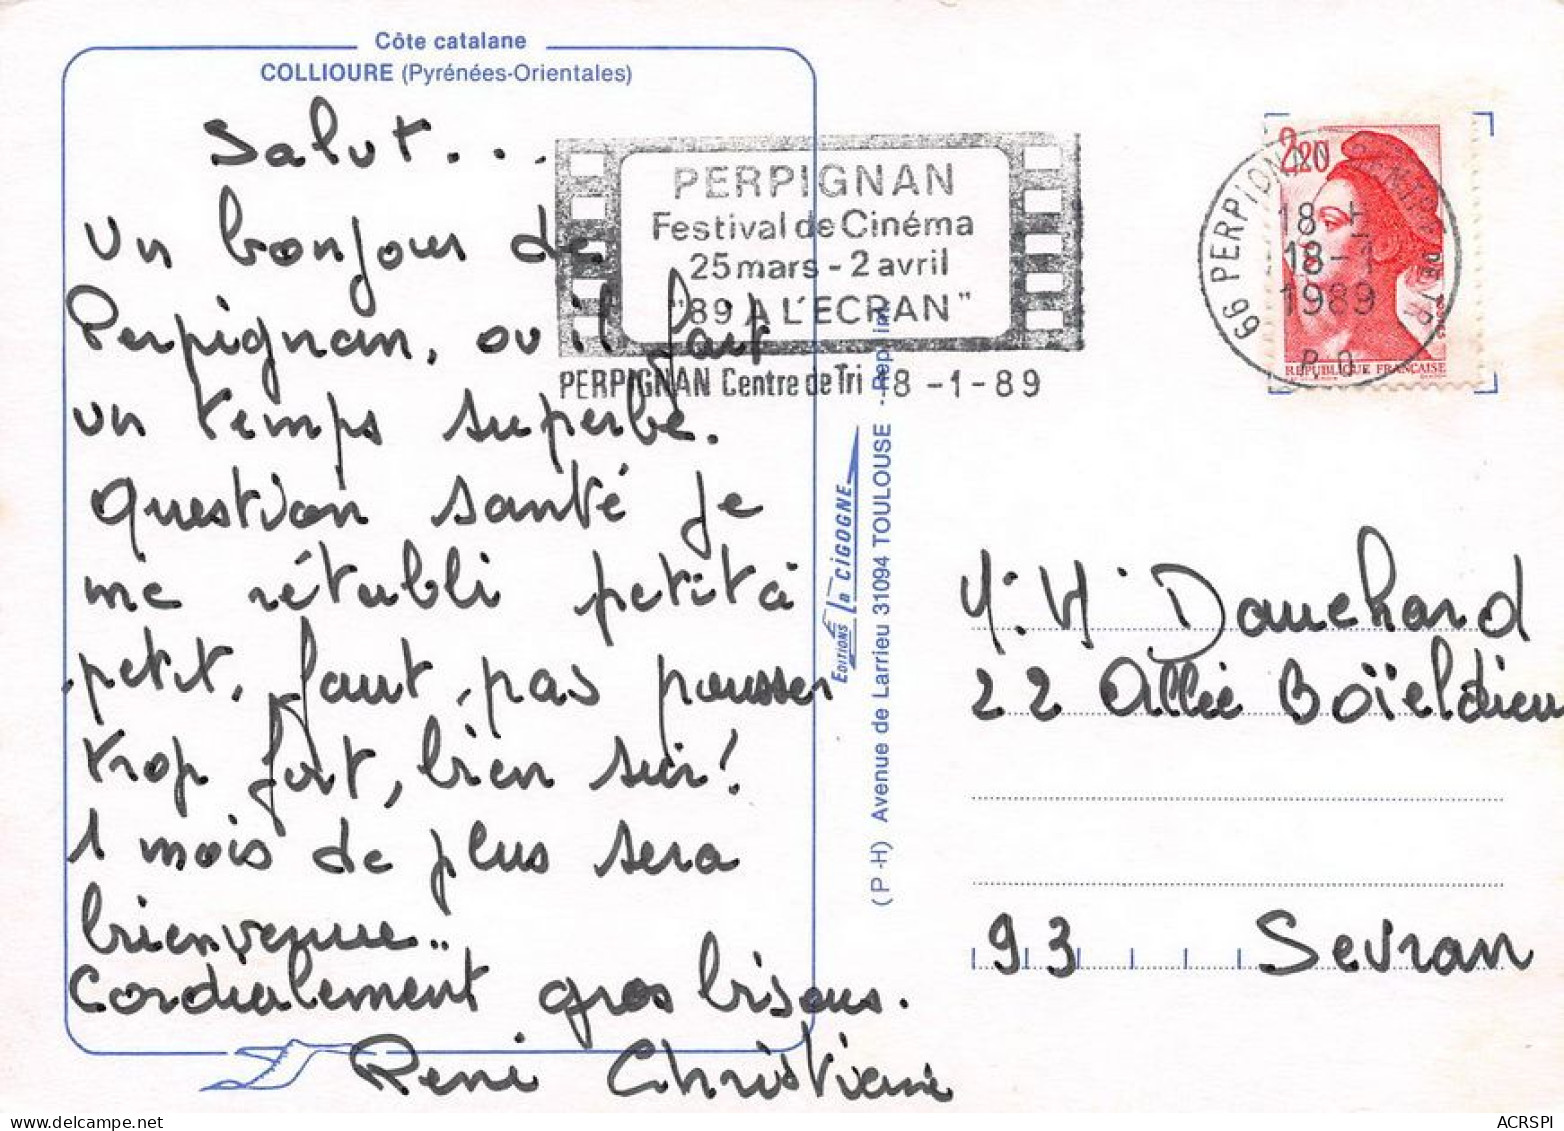 Côte catalane
COLLIOURE (Pyrénées-Orientales)
Salut...
Un bonjour de
Perpignan, ou il fait
un temps superbe.
Question santé je
me rétabli petit à
petit, faut pas pousser
trop fort, bien sûr!
1 mois de plus sera
bienvenue..
Cordialement gros bisous.
René Christiane
PERPIGNAN
Festival de Cinéma
25 mars - 2 avril
"89 A L'ECRAN"
PERPIGNAN Centre de Tri 18 -1-89
EDITIONS la CIGOGNE
(P-H) Avenue de Larrieu 31094 TOULOUSE - Rep. int.
2,20
REPUBLIQUE FRANÇAISE
66 PERPIGNAN
18-1
1989
M. M Dauchard
22 Allée Boïeldieu
93 Sevran
ACRSPI